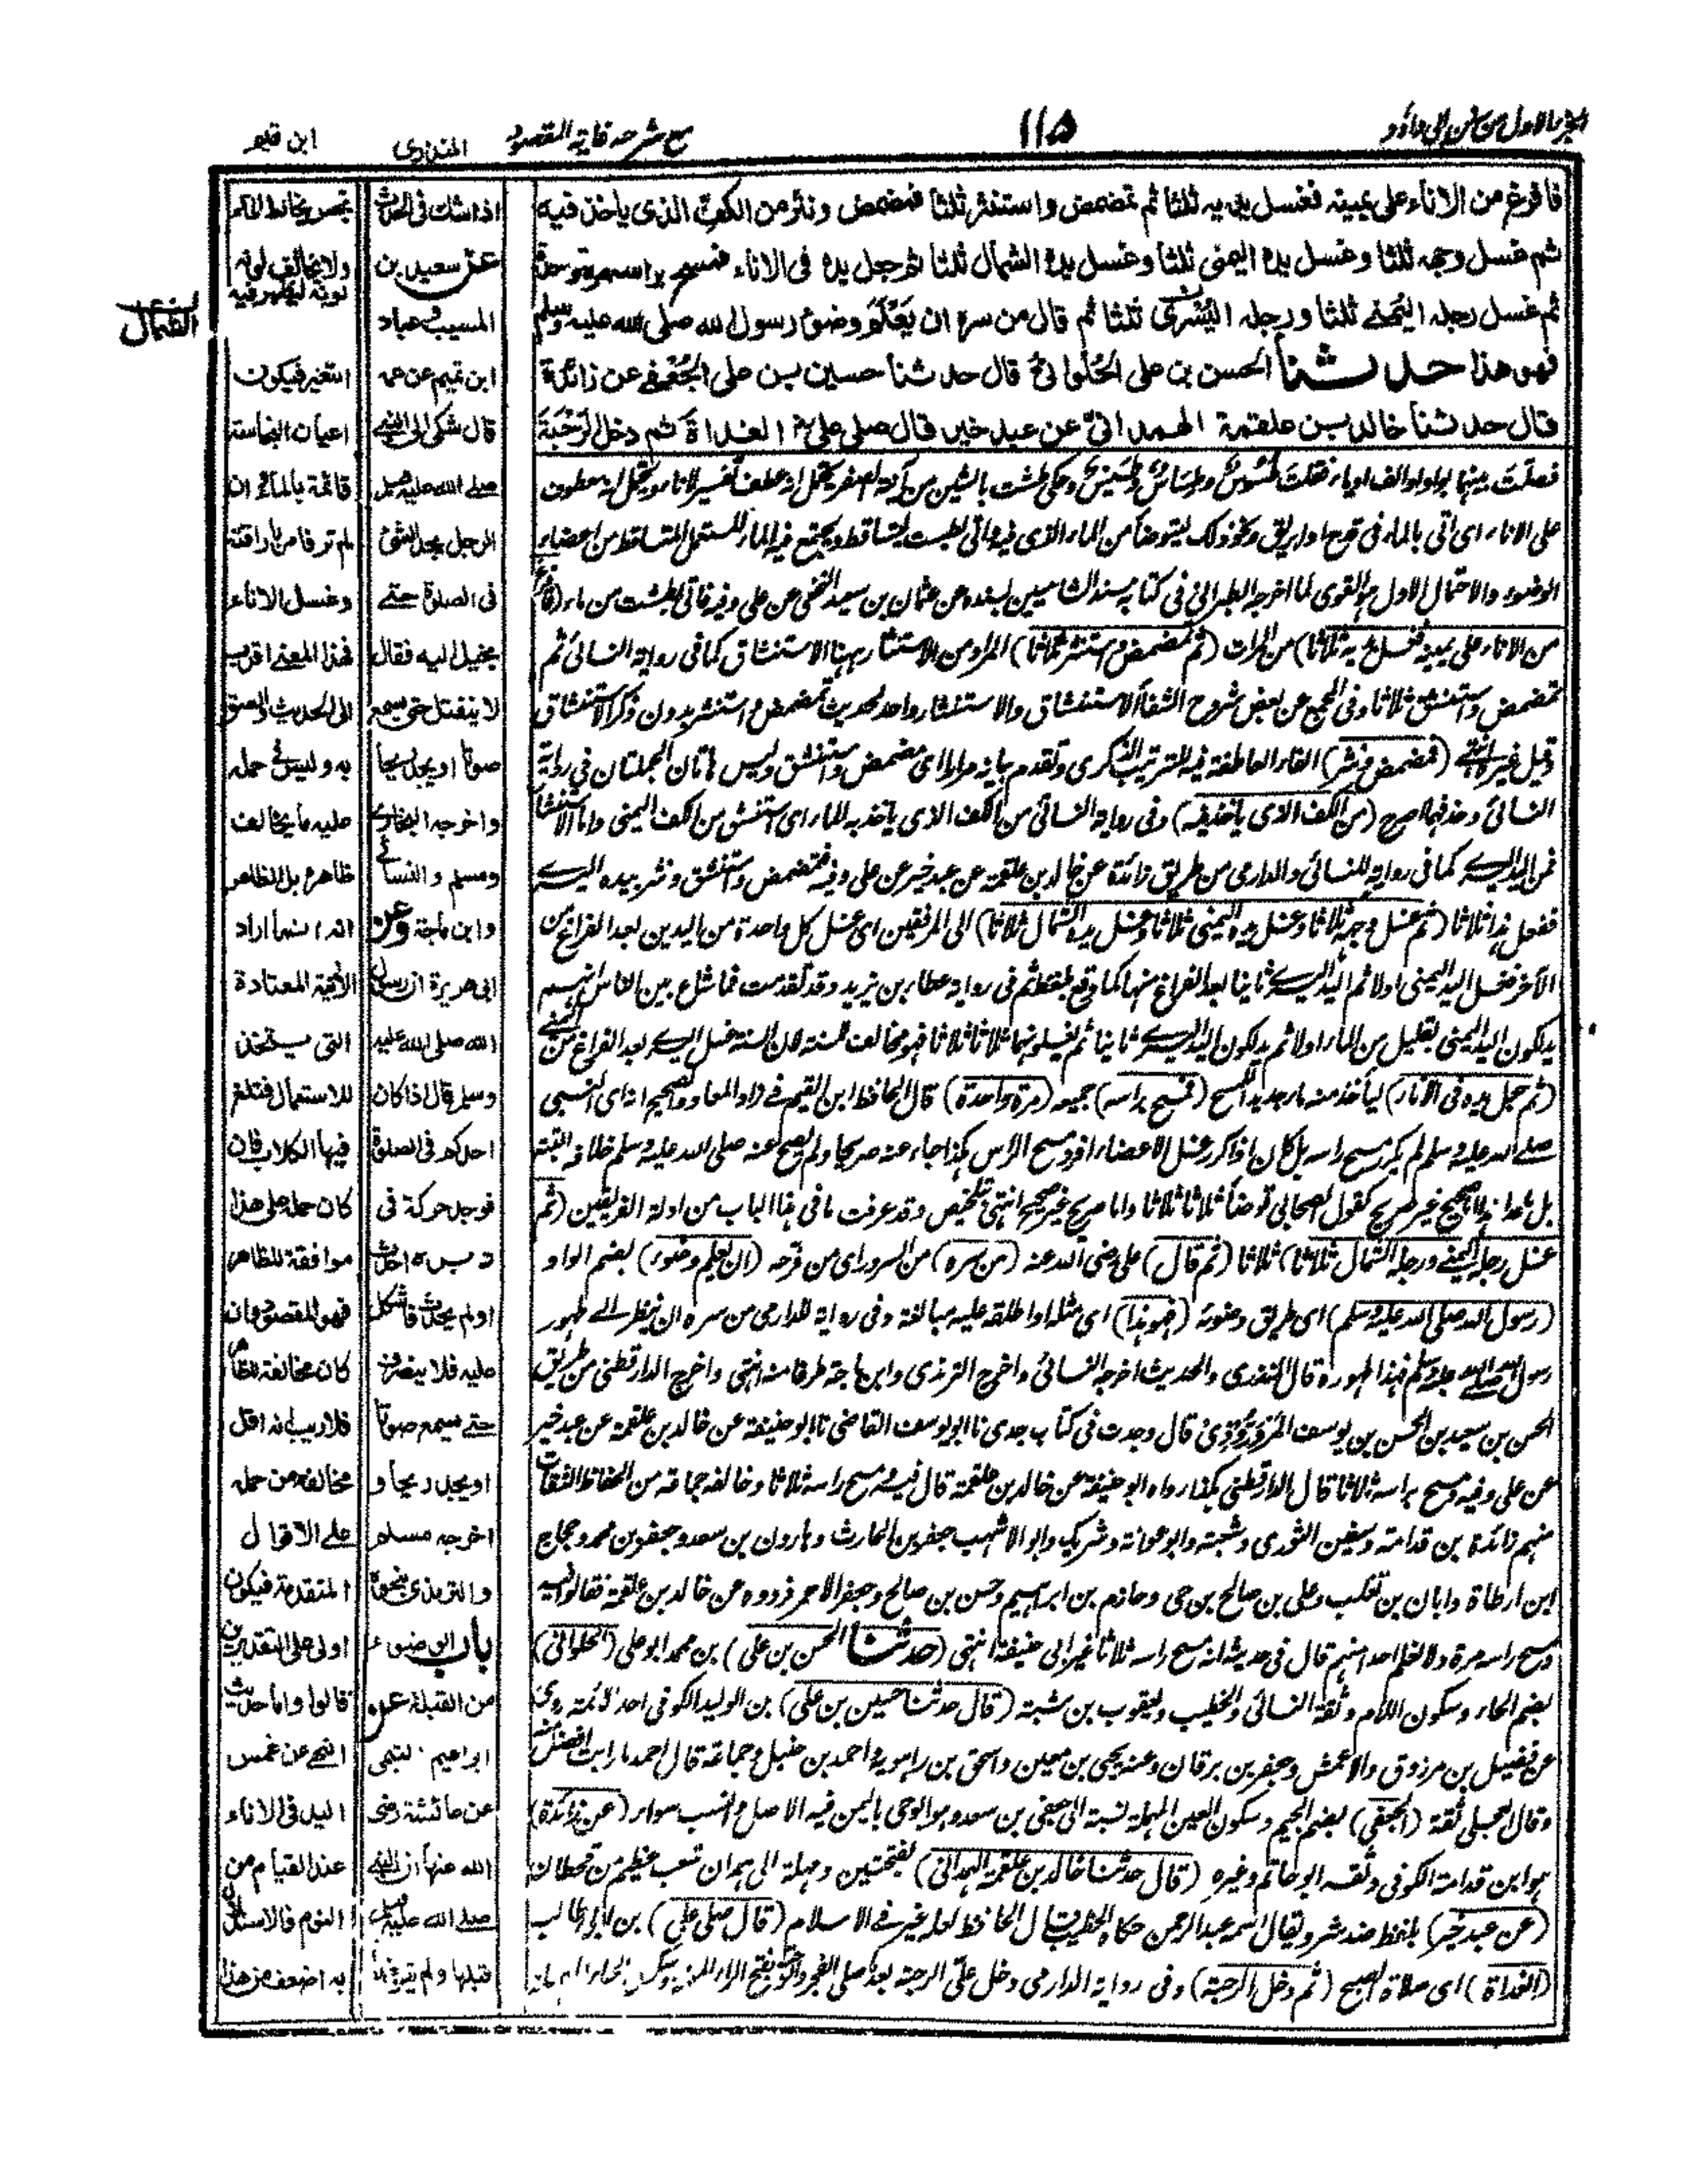 الجزء الاول من سنن ابى داؤد
١١٥
مع شرحه غاية المقصود
المنذرى
ابن قيم
فافرغ من الاناء على يمينه فغسل يديه ثلثا ثم تمضمض واستنثر ثلثا فمضمض ونثر من الكف الذى ياخذ فيه
ثم غسل وجهه ثلثا وغسل يده اليمنى ثلثا وغسل يده الشمال ثلثا ثم جعل يده فى الاناء فمسح براسه مرة واحدة
ثم غسل رجله اليمنى ثلثا ورجله اليسرى ثلثا ثم قال من سره ان يعلم وضوء رسول الله صلى الله عليه وسلم
فهو هذا حدثنا الحسن بن على الحلوانى قال حدثنا حسين بن على الجعفى عن زائدة
قال حدثنا خالد بن علقمة الهمدانى عن عبد خير قال صلى على الغداة ثم دخل الرحبة
على الاناء اى اتى بالماء فى قدح او ابريق ونحو ذلك ليتوضأ من الماء الذى فيه واتى بطست ليتساقط ويجتمع فيه الماء المستعمل المتساقط من اعضاء
الوضوء والاحتمال الاول هو القوى لما اخرجه الطبرانى فى كتابه مسند الشاميين بسنده عن عثمان بن سعيد النخعى عن على وفيه فاتى بطشت من ماء (فافرغ
من الاناء على يمينه فغسل يديه ثلاثا) من المرات (ثم تمضمض واستنثر ثلاثا) المراد من الاستنثار ههنا الاستنشاق كما فى رواية النسائى ثم
تمضمض واستنشق ثلاثا وفى المجمع عن بعض شروح الشفا الاستنشاق والاستنثار واحد لحديث تمضمض واستنثر بدون ذكر الاستنشاق
وقيل غيره انتهى (فمضمض ونثر) الفاء العاطفة فيه للترتيب الذكرى وتقدم بيانه مرارا اى مضمض واستنشق وليس هاتان الجملتان فى رواية
النسائى وحذفهما اصح (من الكف الذى ياخذ فيه) وفى رواية النسائى من الكف الذى ياخذ به الماء اى استنشق من الكف اليمنى واما الاستنثار
فمن اليد اليسرى كما فى رواية للنسائى والدارمى من طريق زائدة عن خالد بن علقمة عن عبد خير عن على وفيه فتمضمض واستنشق ونثر بيده اليسرى
ففعل هذا ثلاثا (ثم غسل وجهه ثلاثا وغسل يده اليمنى ثلاثا وغسل يده الشمال ثلاثا) الى المرفقين اى غسل كل واحدة من اليدين بعد الفراغ من
الآخر فغسل اليد اليمنى اولا ثم اليد اليسرى ثانيا بعد الفراغ منها كما وقع بلفظ ثم فى رواية عطاء بن يزيد وقد تقدمت فما شاع بين الناس انهم
يدلكون اليد اليمنى بقليل من الماء اولا ثم يدلكون اليد اليسرى ثانيا ثم يغسلونهما ثلاثا ثلاثا فهو مخالف للسنة لان السنة غسل اليسرى بعد الفراغ من اليمنى
(ثم جعل يده فى الاناء) لياخذ منه ماء جديدا لمسح (فمسح براسه) جميعه (مرة واحدة) قال الحافظ ابن القيم فى زاد المعاد والصحيح انه اى النبى
صلى الله عليه وسلم لم يكرر مسح راسه بل كان اذا كرر غسل الاعضاء افرد مسح الراس هكذا جاء عنه صريحا ولم يصح عنه صلى الله عليه وسلم خلافه البتة
بل ما عدا هذا اما صحيح غير صريح كقول الصحابى توضأ ثلاثا ثلاثا واما صريح غير صحيح انتهى بتلخيص وقد عرفت ما فى هذا الباب من ادلة الفريقين (ثم
غسل رجله اليمنى ورجله الشمال ثلاثا) ثلاثا (ثم قال) على رضى الله عنه (من سره) من السرور اى من فرحه (ان يعلم وضوء) بضم الواو
(رسول الله صلى الله عليه وسلم) اى طريق وضوئه (فهو هذا) اى مثله او اطلقه عليه مبالغة وفى رواية للدارمى من سره ان ينظر الى طهور
رسول الله صلى الله عليه وسلم فهذا طهوره قال المنذرى والحديث اخرجه النسائى واخرج الترمذى وابن ماجة طرفا منه انتهى واخرج الدارقطنى من طريق
الحسن بن سعيد بن الحسن بن يوسف المروروذى قال وجدت فى كتاب جدى نا ابو يوسف القاضى نا ابو حنيفة عن خالد بن علقمة عن عبد خير
عن على وفيه ومسح براسه ثلاثا قال الدارقطنى هكذا رواه ابو حنيفة عن خالد بن علقمة قال فيه ومسح راسه ثلاثا وخالفه جماعة من الحفاظ الثقات
منهم زائدة بن قدامة وسفين الثورى وشعبة وابو عوانة وشريك وابو الاشهب جعفر بن الحارث وهارون بن سعد وجعفر بن محمد وحجاج
ابن ارطاة وابان بن تغلب وعلى بن صالح بن حى وحازم بن ابراهيم وحسن بن صالح وجعفر الاحمر فرووه عن خالد بن علقمة فقالوا فيه
ومسح راسه مرة ولا نعلم احدا منهم قال فى حديثه انه مسح راسه ثلاثا غير ابى حنيفة انتهى (حدثنا الحسن بن على) بن محمد ابو على (الحلوانى)
بضم الحاء وسكون اللام وثقه النسائى والخطيب ويعقوب بن شيبة (قال حدثنا حسين بن على) بن الوليد الكوفى احد الائمة روى
عن فضيل بن مرزوق والاعمش وجعفر بن برقان وعنه يحيى بن معين واسحق بن راهويه واحمد بن حنبل وجماعة قال احمد ما رايت افضل منه
وقال العجلى ثقة (الجعفى) بضم الجيم وسكون العين المهملة نسبة الى جعفى بن سعد وهو ابو حى باليمن فيه الاصل والنسب سواء (عن زائدة)
هو ابن قدامة الكوفى وثقه ابو حاتم وغيره (قال حدثنا خالد بن علقمة الهمدانى) بفتحتين ومهملة الى همدان شعب عظيم من قحطان
(عن عبد خير) بلفظ ضد شر ويقال اسمه عبد الرحمن حكاه الخطيب قال الحافظ لعله غير فى الاسلام (قال صلى على) بن ابى طالب
(الغداة) اى صلاة الصبح (ثم دخل الرحبة) وفى رواية الدارمى دخل على الرحبة بعد ما صلى الفجر والرحبة بفتح الراء المهملة
اذا شك فى الحدث
عن سعيد بن
المسيب وعباد
ابن تميم عن عمه
قال شكى الى النبى
صلى الله عليه وسلم
الرجل يجد الشئ
فى الصلوة حتى
يخيل اليه فقال
لا ينفتل حتى يسمع
صوتا او يجد ريحا
واخرجه البخارى
ومسلم والنسائى
وابن ماجة وعن
ابى هريرة ان رسول
الله صلى الله عليه
وسلم قال اذا كان
احدكم فى الصلوة
فوجد حركة فى
دبره احدث
او لم يحدث فاشكل
عليه فلا ينصرف
حتى يسمع صوتا
او يجد ريحا و
اخرجه مسلم
والترمذى بنحوه
باب الوضوء
من القبلة عن
ابراهيم التيمى
عن عائشة رضى
الله عنها ان النبى
صلى الله عليه وسلم
قبلها ولم يتوضأ
ولا يخالف لونه
لونه ليظهر فيه
التغير فيكون
اعيان النجاسة
قائمة بالماء ان
لم تر فامر باراقته
وغسل الاناء
فهذا المعنى اقرب
الى الحديث والصق
به وليس فى حمله
عليه ما يخالف
ظاهره بل الظاهر
انه انما اراد
الآنية المعتادة
التى يتخذ
للاستعمال فتلغ
فيها الكلاب فان
كان حمله على هذا
موافقة للظاهر
فهو المقصود وان
كان مخالفة للظاهر
فلا ريب انه اقل
مخالفة من حمله
على الاقوال
المتقدمة فيكون
اولى على التقديرين
قالوا واما حديث
النهى عن غمس
اليد فى الاناء
عند القيام من
النوم فالاستدلال
به اضعف من هذا
الشمال